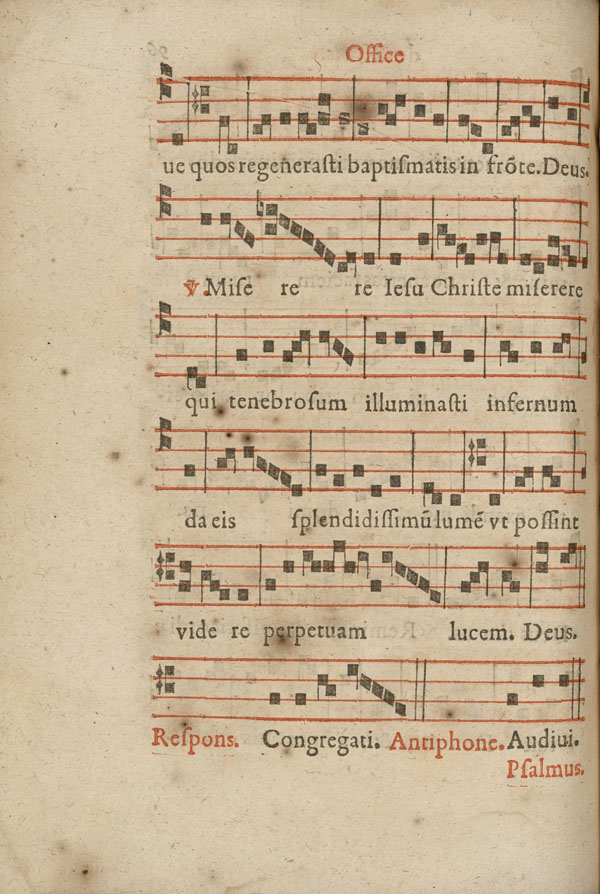 Office
ue quos regenerasti baptismatis in frōte. Deus.
℣. Mise re re Iesu Christe miserere
qui tenebrosum illuminasti infernum
da eis splendidissimū lumē vt possint
vide re perpetuam lucem. Deus.
Respons. Congregati. Antiphone. Audiui.
Psalmus.